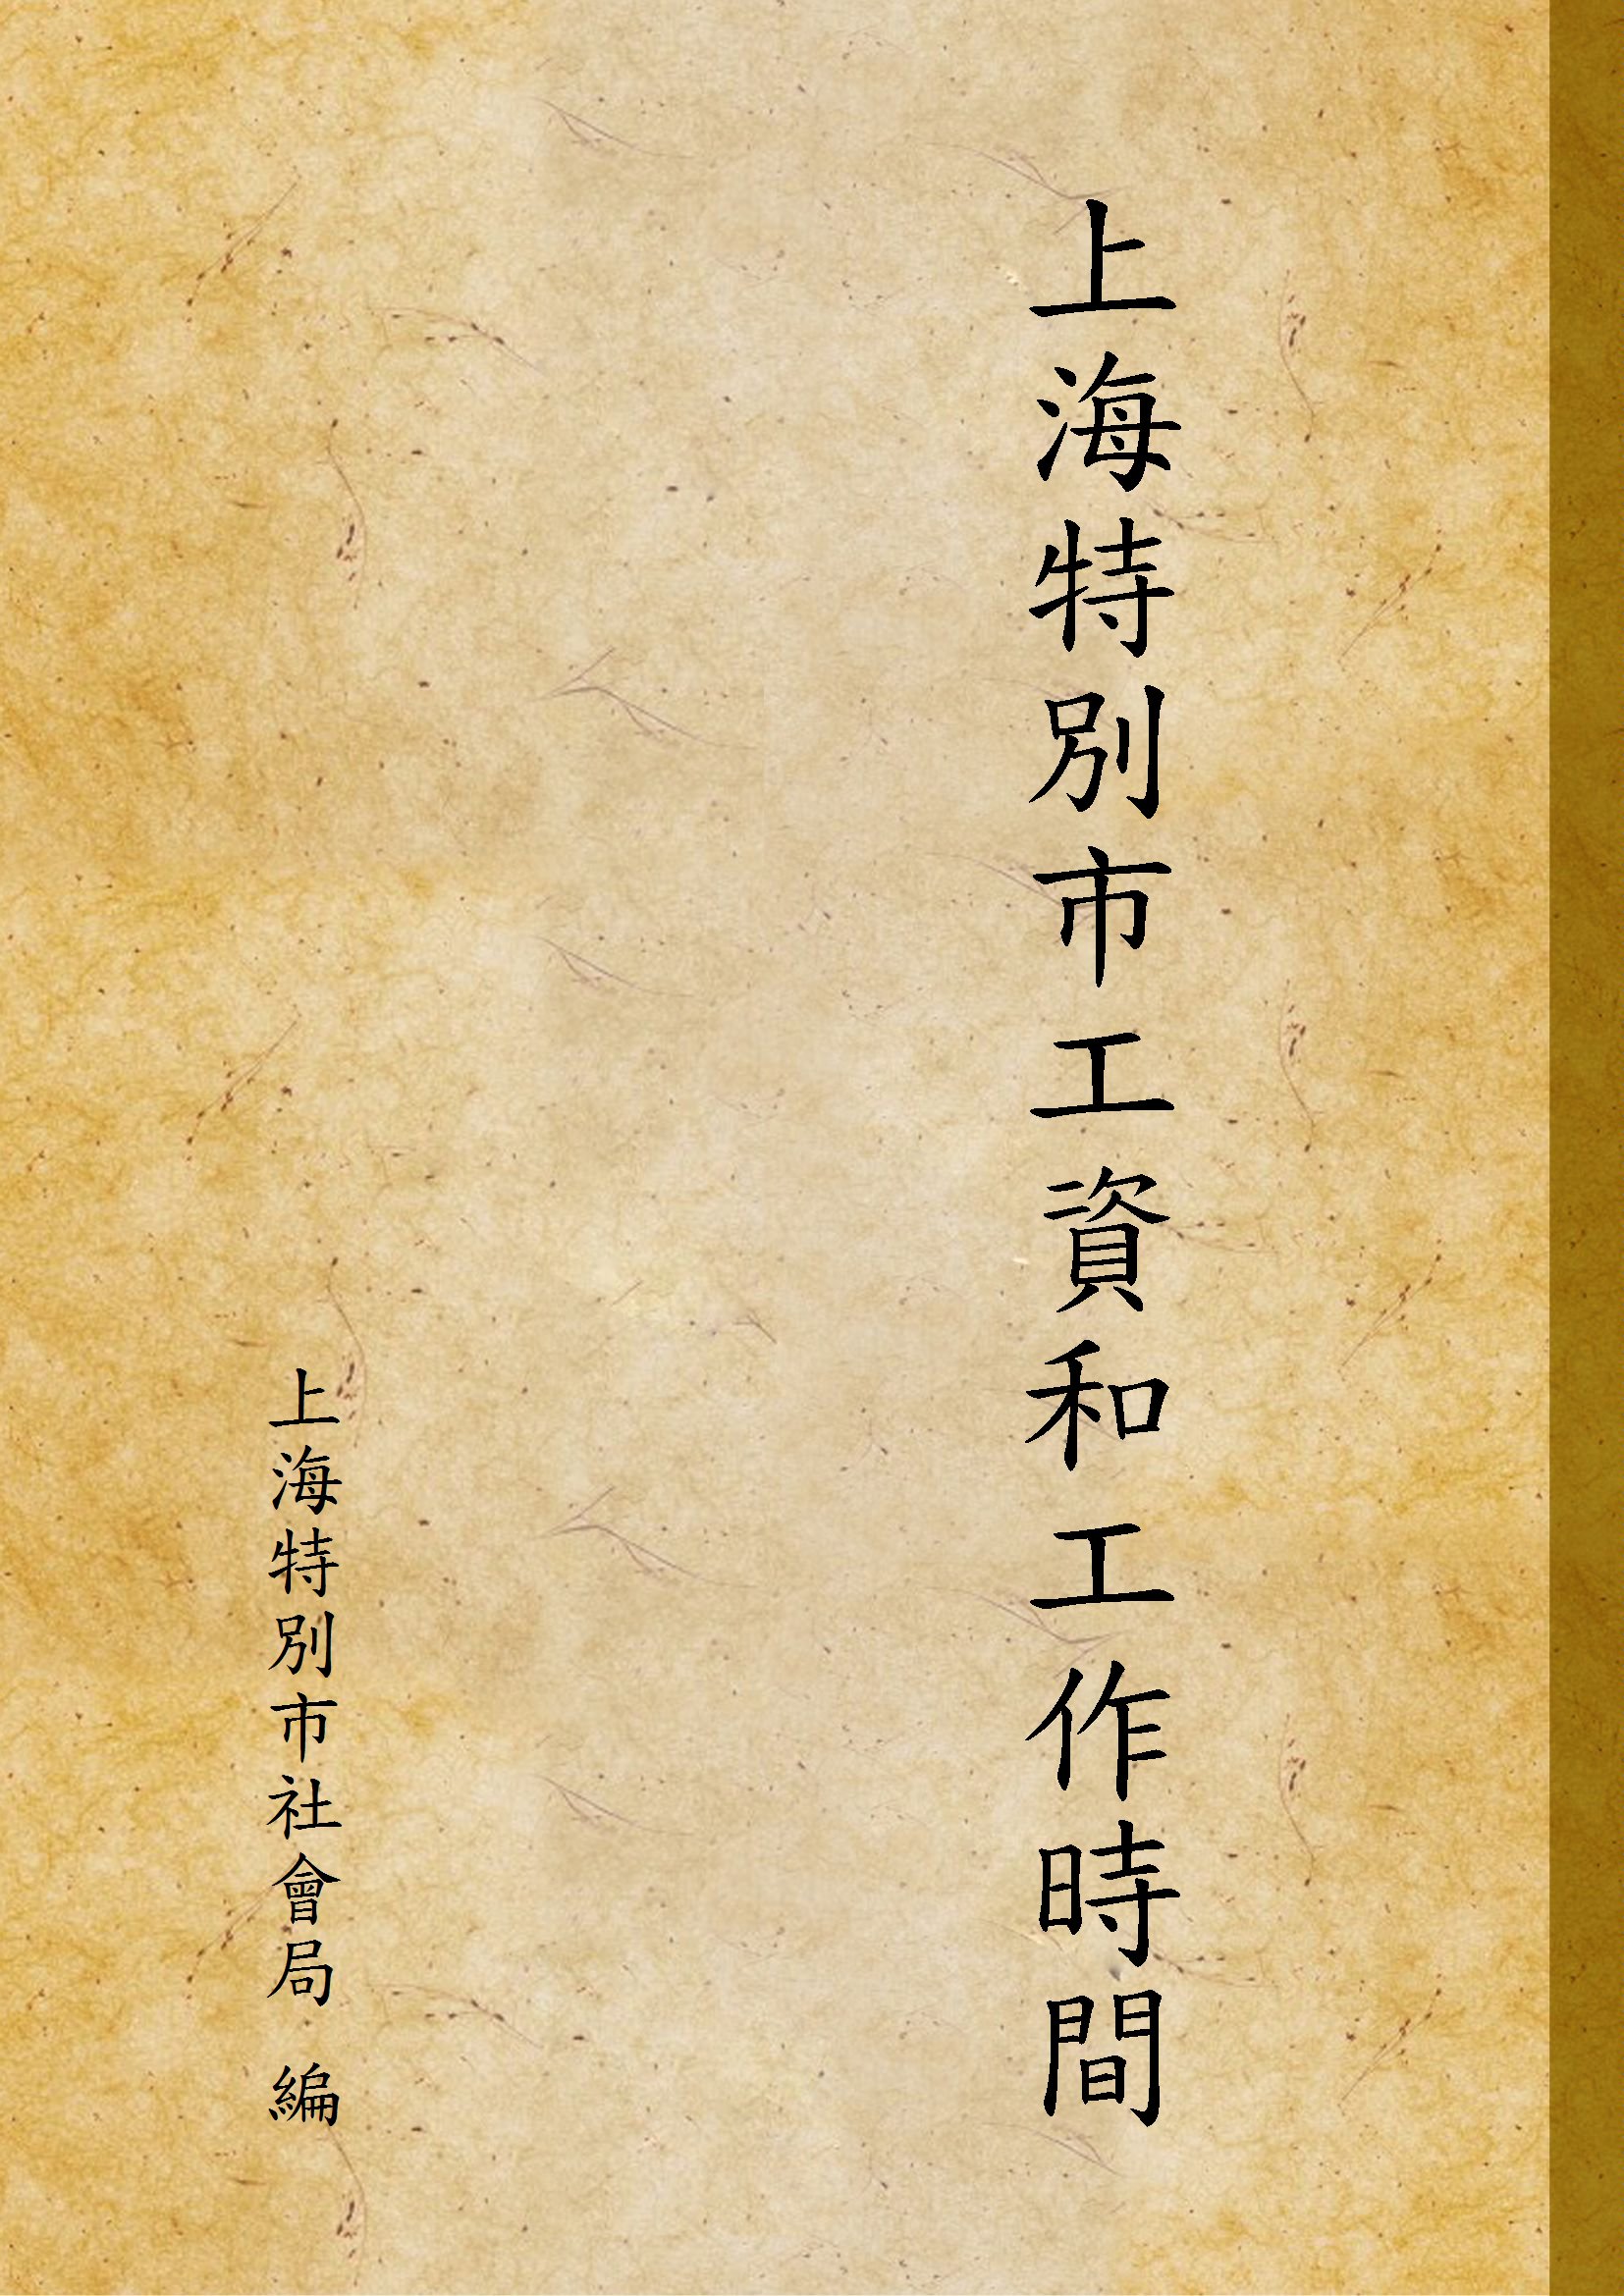 上海特別市工資和工作時間
上海特別市社會局 編